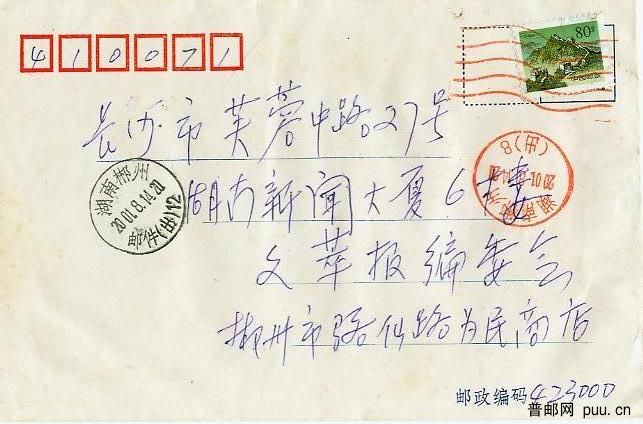 410071
80分
长沙市芙蓉中路27号
湖南郴州
2001.8.14.20
邮件(出)12
湖南新闻大厦6楼
(出)8
湖南郴州
文萃报编委会
郴州市骆仙路为民商店
邮政编码423000
普邮网 puu.cn